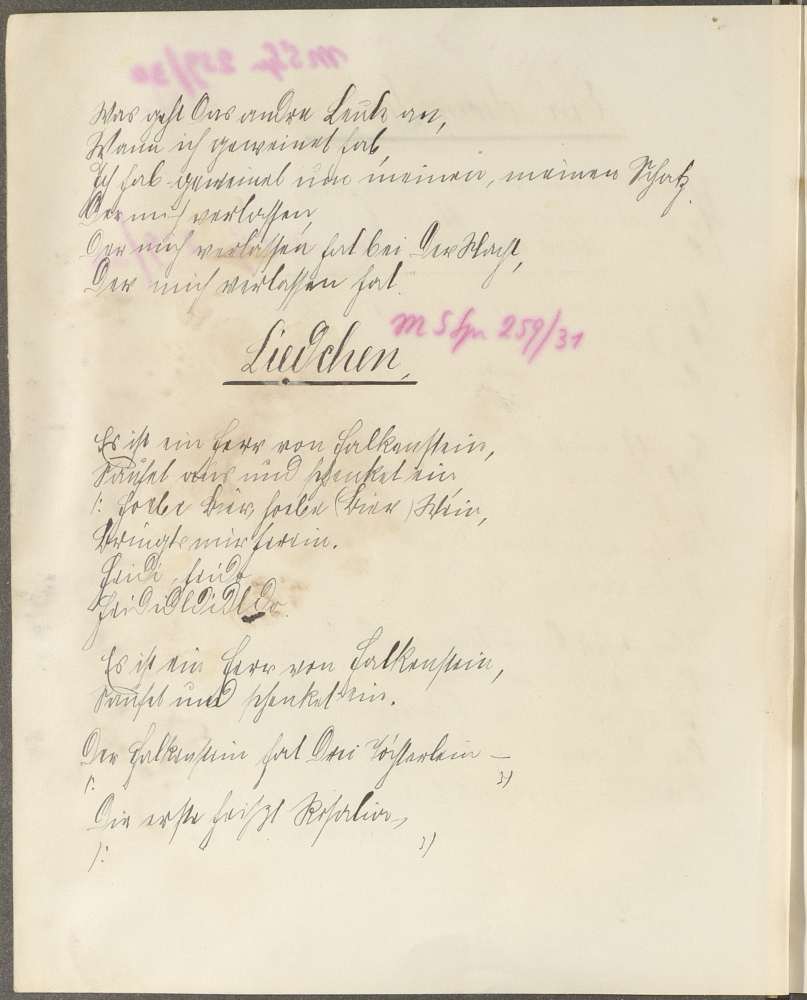 Was geht das andre Leute an,
Wann ich geweinet hab,
Ich hab geweinet um meinen, meinen Schatz.
Der mich verlassen,
Der mich verlassen hat bei der Nacht,
Der mich verlassen hat.
M Spr 259/31
Liedchen,
Es ist ein Herr von Falkenstein,
Saufet aus und schenket ein,
/: holde Bier holde (Bier) Wein,
Bringt mir herein.
Heidi, heido
Heidideldideldo.
Es ist ein Herr von Falkenstein,
Saufet und schenket ein.
Der Falkenstein hat drei Töchterlein —
/: :/
Die erste heißt Rosalia,
/: :/